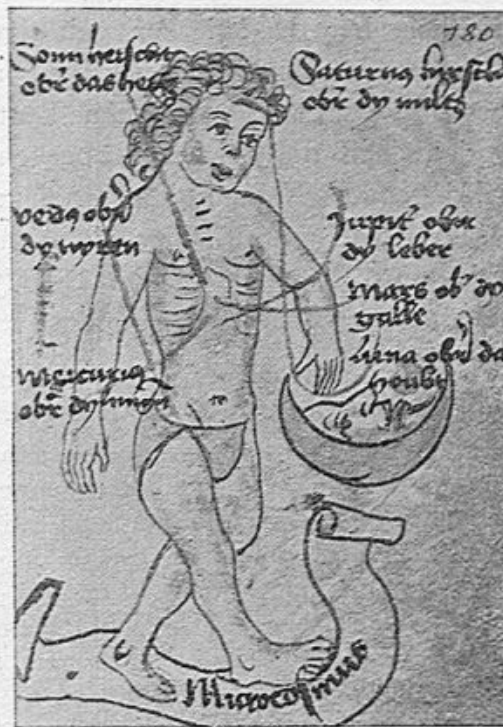 180
Sonn herscht
obr das hertz
Saturnus herscht
obr dy miltz
venus obr
dy nyren
Jupitr obr
dy leber
mars obr dy
galle
luna obr das
houbt
mercurius
obr dy lungen
Microcosmus